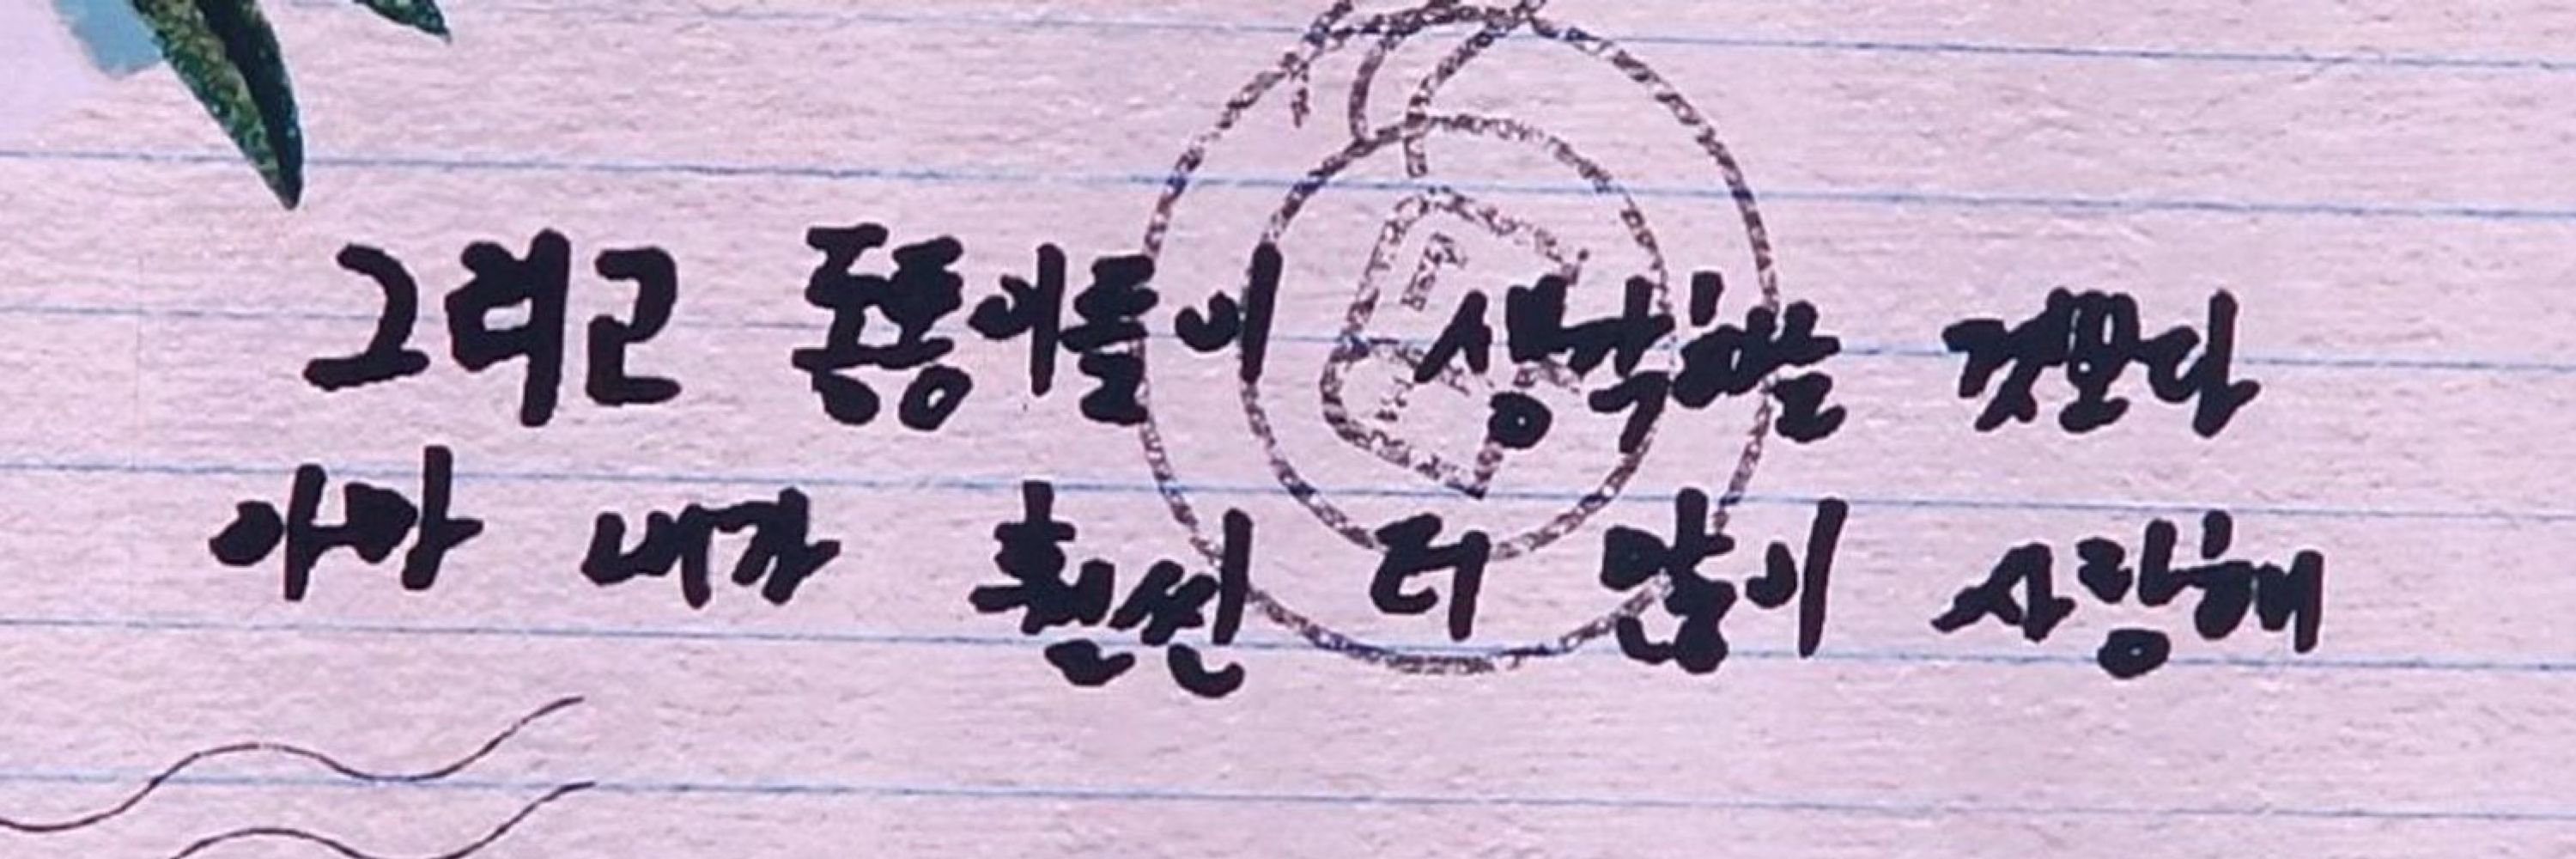 그리고 돈퐁이들이 생각하는 것보다
아마 내가 훨씬 더 많이 사랑해